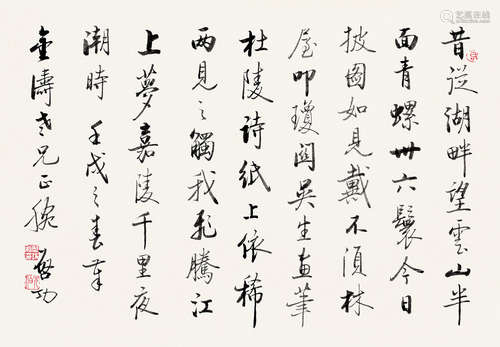 昔從湖畔望雲山半
面青螺卅六鬟今日
披圖如見戴不須林
屋叩瓊關吳生畫筆
杜陵詩紙上依稀
兩見之觸我飛騰江
上夢嘉陵千里夜
潮時 壬戌之春
濤老兄正腕 啟功